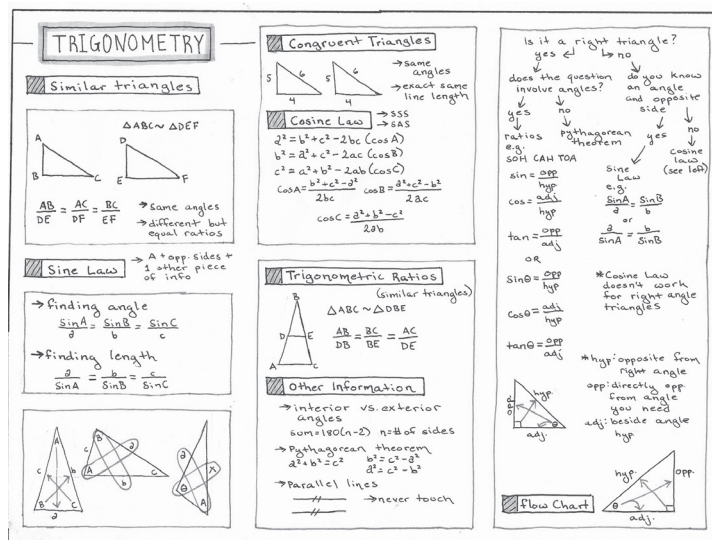 TRIGONOMETRY
Similar triangles
△ABC ~ △DEF
A
B
C
D
E
F
AB/DE = AC/DF = BC/EF
→ same angles
→ different but
equal ratios
Sine Law
→ A + opp. sides +
1 other piece
of info
→ finding angle
SinA/a = SinB/b = SinC/c
→ finding length
a/SinA = b/SinB = c/SinC
A
c
b
B
C
a
B
c
a
A
b
C
θ
x
A
Congruent Triangles
5
6
4
5
6
4
→ same
angles
→ exact same
line length
Cosine Law
→ SSS
→ SAS
a² = b² + c² - 2bc (cosA)
b² = a² + c² - 2ac (cosB)
c² = a² + b² - 2ab (cosC)
CosA = b² + c² - a²/2bc
cosB = a² + c² - b²/2ac
cosC = a² + b² - c²/2ab
Trigonometric Ratios
(similar triangles)
B
D
E
A
C
△ABC ~ △DBE
AB/DB = BC/BE = AC/DE
Other Information
→ interior vs. exterior
angles
sum = 180(n-2) n = # of sides
→ Pythagorean theorem
a² + b² = c²
b² = c² - a²
a² = c² - b²
→ Parallel lines
→ never touch
Is it a right triangle?
yes
no
does the question
involve angles?
do you know
an angle
and opposite
side
yes
no
ratios
e.g.
SOH CAH TOA
pythagorean
theorem
yes
no
cosine
law
(see left)
Sine
Law
e.g.
SinA/a = SinB/b
or
a/sinA = b/SinB
sin = opp/hyp
cos = adj/hyp
tan = opp/adj
OR
Sinθ = opp/hyp
cosθ = adj/hyp
tanθ = opp/adj
*Cosine Law
doesn't work
for right angle
triangles
*hyp: opposite from
right angle
opp: directly opp.
from angle
you need
adj: beside angle
hyp
opp
hyp.
θ
adj.
hyp.
opp.
θ
adj.
flow Chart